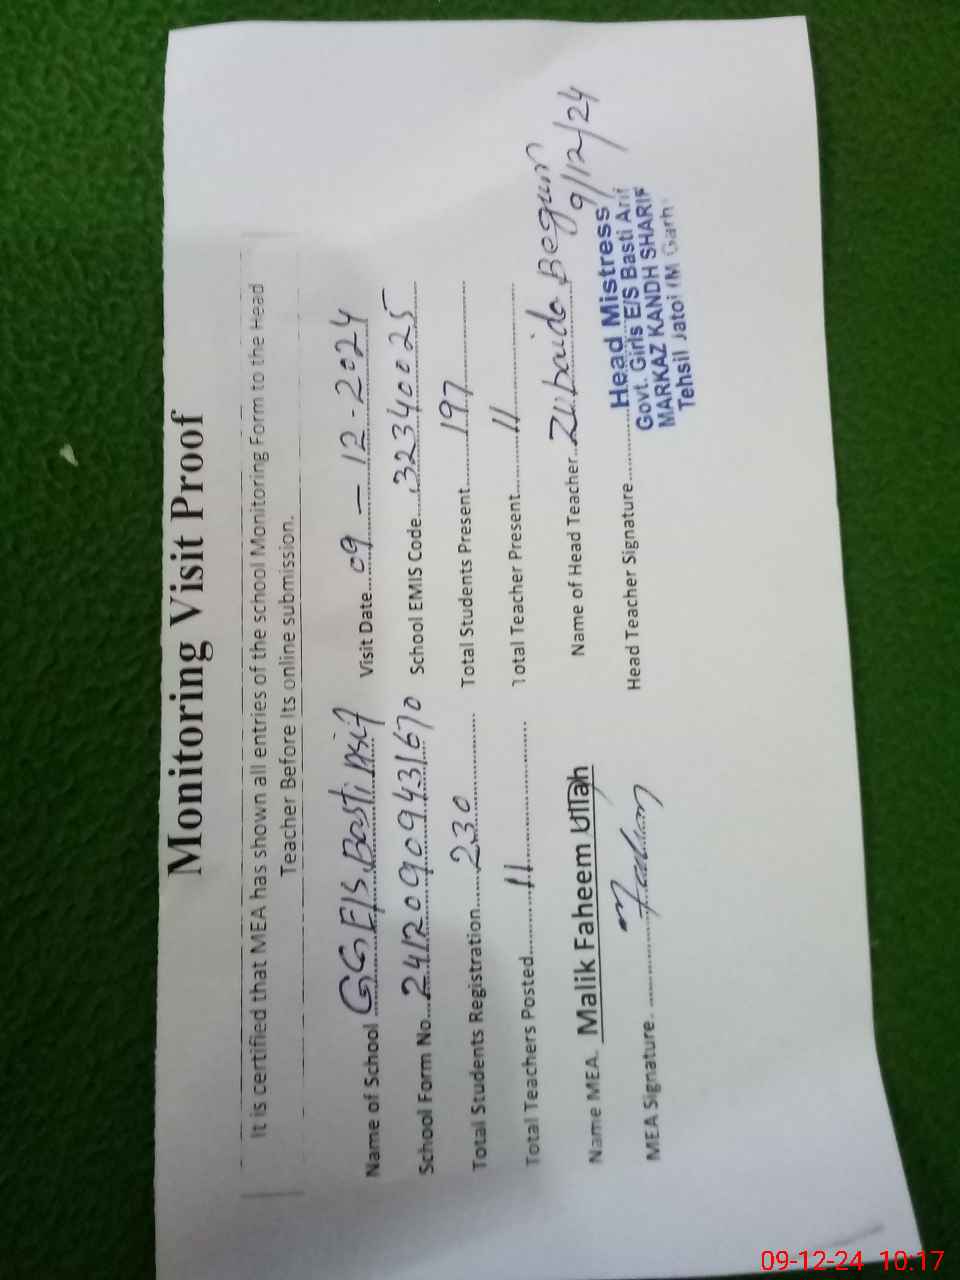 Monitoring Visit Proof
It is certified that MEA has shown all entries of the school Monitoring Form to the Head
Teacher Before Its online submission.
Name of School GGE/S, Basti Asif Visit Date 09 - 12 - 2024
School Form No. 241209094331670 School EMIS Code 32340025
Total Students Registration 230 Total Students Present 197
Total Teachers Posted 11 Total Teacher Present 11
Name MEA. Malik Faheem Ullah Name of Head Teacher Zubaida Begum
MEA Signature. Head Teacher Signature 9/12/24
Head Mistress
Govt. Girls E/S Basti Arif
MARKAZ KANDH SHARIF
Tehsil Jatoi (M Garh
09-12-24 10:17